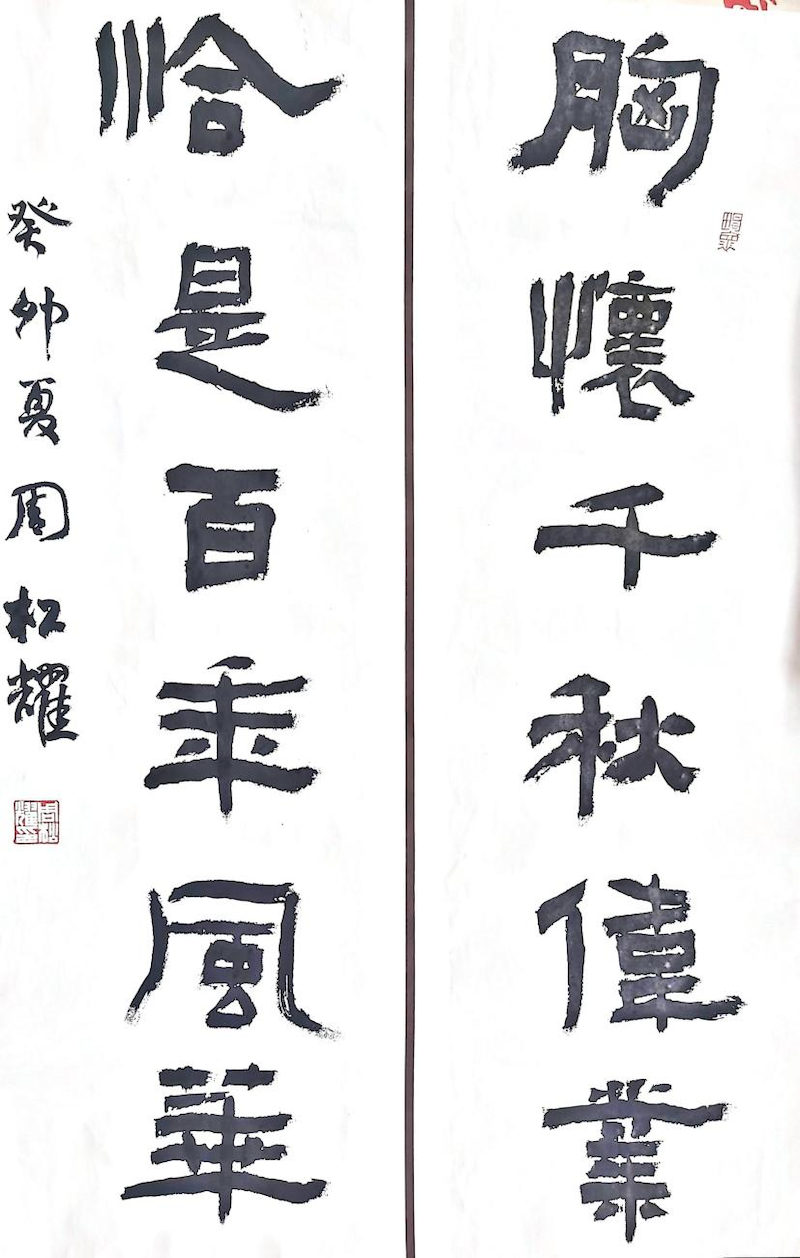 胸懷千秋偉業
恰是百年風華
癸卯夏周松耀